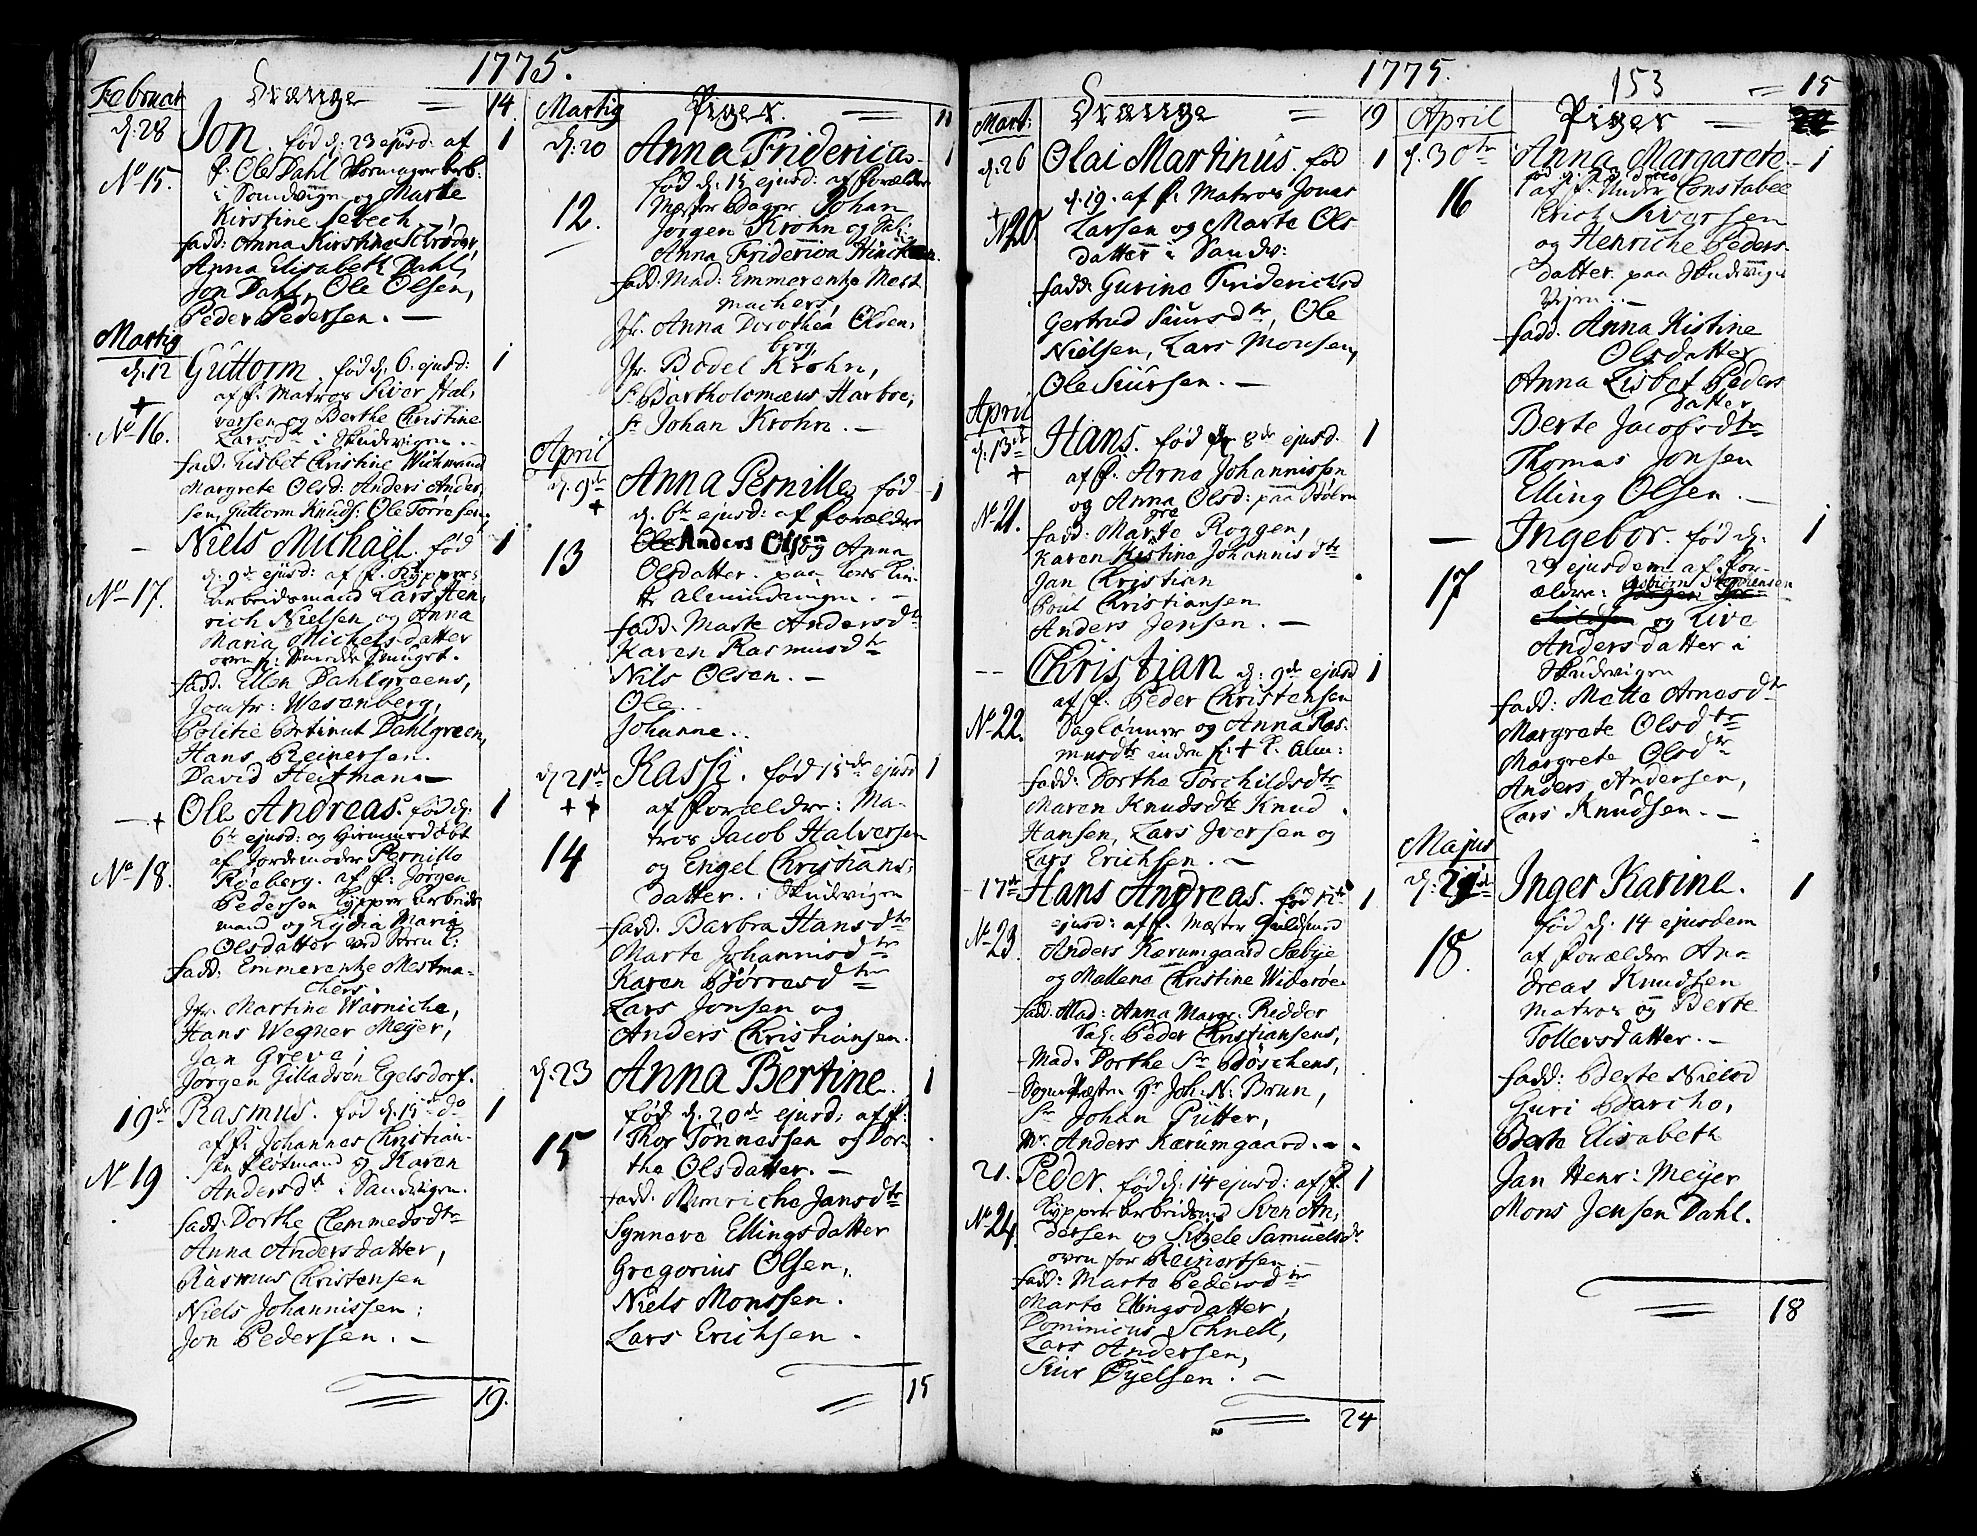 1775.
Februar
Drænge = 14
d: 28 Jon. fød d: 23 ejusd: af 1
No 15. f. Ole Dahl Skomager
i Sandvigen og Marte
Kirstine
fadd: Anna Kirstine Schrøder,
Anna Elisabeth Dahl,
Jon Dahl, Ole Olsen,
Peder Pedersen. —
Martij
d. 12 Guttorm fød d. 6. ejusd: 1
+ af f. Matros Siver Hal,
No 16. versen og Berthe Christine
Larsdtr i Skudvigen
fadd: Lisbet Christine Wichmand
Margrete Olsd: Anders Ander,
sen, Guttorm Knuds: Ole Torresen.
— Niels Michaël. fød 1
d. 9de ejusd: af f. Kypper,
No 17. arbeidsmand Lars Hen,
rich Nielsen og Anna
Maria Michelsdatter
oven
fadd: Ellen Dahlgreens,
Jomfr: Wesenberg,
Politie Betient Dahlgreen,
Hans Reinersen.
David Heitmann —
— + Ole Andreas. fød d. 1
6te ejusd: og hiemmedøbt
af Jordemoder Pernille
No 18. Røeberg. af f: Jørgen
Pedersen Kypper arbeids
mand og Lydia Maria
Olsdatter ved
fadd: Emmerentze Mestma-
chers.
Jfr. Martine Warniche,
Hans Wegner Meyer,
Jan Greve,
Jørgen Gilladsøn Egelsdorf.
19de Rasmus. fød d. 15de do 1
af f. Johannes Christian-
sen og Karen
No 19 Andersdtr i Sandvigen.
fadd: Dorthe Clemmedsdtr
Anna Andersdatter,
Rasmus Christensen
Niels Johannissen:
Jon Pedersen. —
19.
Martij Piger. = 11
d. 20 Anna Friderica 1
fød d. 15 ejusd: af forældre
12. Mæster Bager Johan
Jørgen Krohn og Sal:
Anna Friderica
fadd: Mad: Emmerentze Mest
machers,
Jfr. Anna Dorothea Olden,
borg
Jfr. Bodel Krohn,
Sr Bartholomæus Harboe,
Sr Johan Krohn. —
April
d. 9de Anna Pernille fød 1
+ d. 6te ejusd: af forældre
13 Ole Anders Olsen og Anna
Olsdatter. paa
Almindingen. —
fadd: Marte Andersdtr
Karen Rasmusdtr
Nils Olsen. —
Ole..
Johanne..
d. 21de Kassi. fød 15de ejusd 1
+ + af forældre: Ma-
tros Jacob Halversen
14 og Engel Christians,
datter. i Skudvigen
fadd: Barbra Hansdtr
Marte Johannisdtr
Karen Børresdtr
Lars Jonsen og
Anders Christiansen.
d. 23 Anna Bertine. 1
fød d. 20de ejusd: af f:
15 Thor Tønnessen og Dor-
the Olsdatter. —
fadd: Henriche Jansdtr
Synneve Ellingsdatter
Gregorius Olsen,
Niels Monssen.
Lars Erichsen.
= 15
1775.
Mart: Drænge = 19
d: 26 Olai Martinus. fød 1
d. 19. af f. Matros Jonas
+ No 20 Larsen og Marte Ols
datter i Sandv:
fadd: Gurine Fridericksd
Gertrud Siursdtr, Ole
Nielsen, Lars Monsen,
Ole Siursen. —
April
d. 13de Hans. fød 8de ejusd. 1
+ af f. Arne Johannissen
og Anna Olsd: paa
No 21. fadd: Margre Roggen,
Karen Kistine Johannisdtr
Jan Christian
Poul Christiansen
Anders Jensen. —
— Christian d: 9de ejusd 1
af f. Peder Christensen
No 22. Dagløner og Anna Ras-
musdtr
fadd: Dorthe Torchildsdtr
Maren Knudsdtr Knud
Hansen, Lars Iversen og
Lars Erichsen. —
17de Hans Andreas. fød 1
ejusd: af f. Mæster Guldsmed
No 23. Anders Kærumgaard Sæbye
og Mallena Christine Widerøe
fadd: Mad: Anna Margr: Ridder
Sal: Peder Christiansens,
Mad: Dorthe Sr Bøschens,
Sogne Præsten Hr Joh: N: Brun,
Sr Johan Pütter,
Mr. Anders Kærumgaard. —
21. Peder. fød d: 14 ejusd: af f. 1
Kypper arbeidsmd Sven An,
No 24. dersen og Sitzele Samuelsdr
oven for Reinertsen
fadd: Marta Pedersdtr
Marta Ellingsdatter,
Dominicus Schnell,
Lars Andersen,
Siur Øyelsen. —
= 24
1775. 153 = 15
April Piger =
d. 30te Anna Margarete. 1
16 af f. Under Constabel
Erich Siversen
og Henriche Peders-
datter paa Skudvigs
Veien. —
fadd. Anna Kistine
Olsdatter
Anna Lisbet Peders
datter
Berte Jacobsdtr
Thomas Jonsen
Elling Olsen. —
— Ingebor. fød d. 1
29 ejusdem af for-
17 ældre: og Live
Andersdatter i
Skudvigen
fadd: Mette Arnesdtr
Margrete Olsdtr
Margrete Olsdtr
Anders Andersen,
Lars Knudsen. —
Majus
d: 21de Inger Karine. 1
fød d. 14 ejusdem
18. af forældre An-
dreas Knudsen
Matros og Berte
Tollersdatter. —
fadd: Berte Nielsd
Guri Barcho,
Berte Elisabeth
Jan Henr: Meyer
Mons Jensen Dahl.
= 18